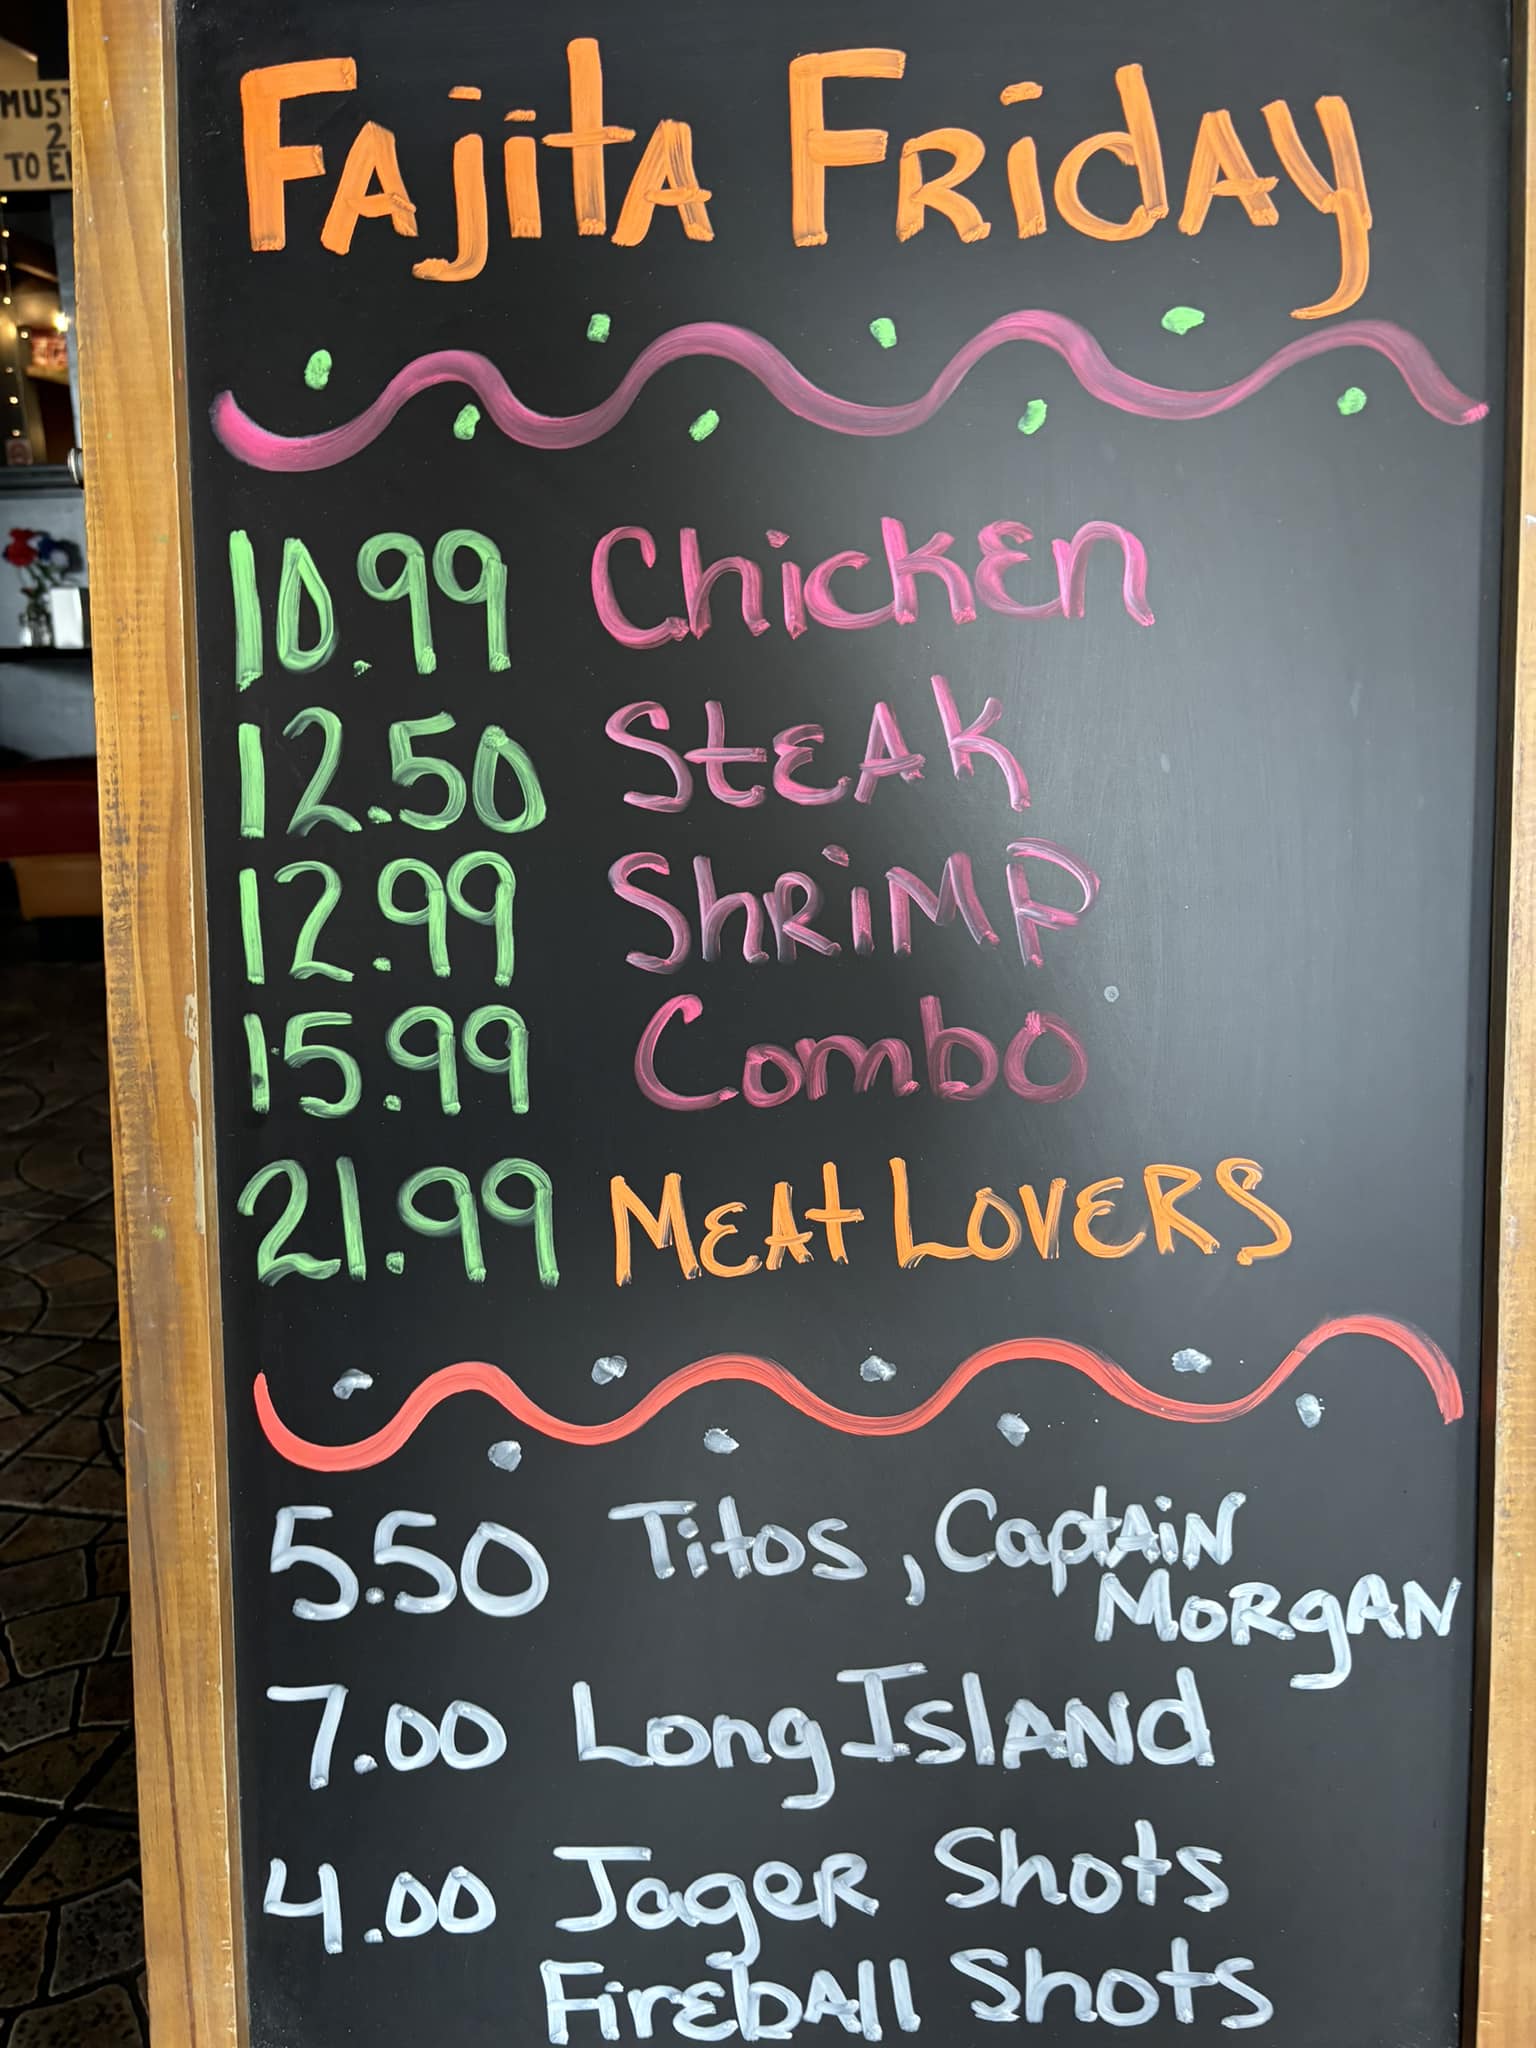 MUST
2
TO E
Fajita Friday
10.99 Chicken
12.50 Steak
12.99 Shrimp
15.99 Combo
21.99 Meat Lovers
5.50 Titos, Captain
Morgan
7.00 Long Island
4.00 Jager Shots
Fireball Shots